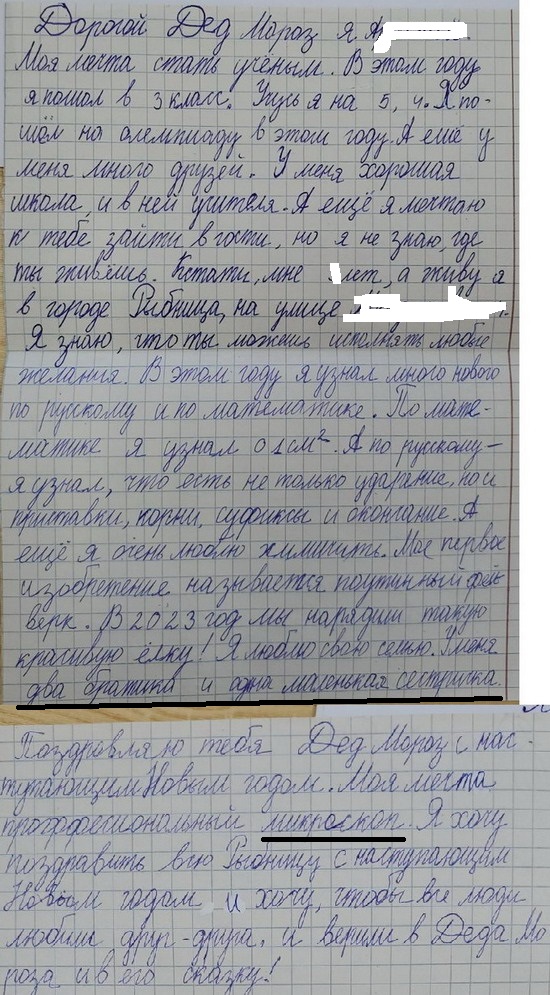 Дорогой Дед Мороз я
Моя мечта стать учёным. В этом году
я пошол в 3 класс. Учусь я на 5, 4. Я по-
шём на олемпиаду в этом году. А ещё у
меня много друзей. У меня хорошая
школа, и в ней учителя. А ещё я мечтаю
к тебе зайти в гости, но я не знаю, где
ты живёшь. Кстати, мне лет, а живу я
в городе Рыбница, на улице
Я знаю, что ты можешь исполнять любые
желания. В этом году я узнал много нового
по русскому и по математике. По мате-
матике я узнал о 1 см². А по русскому -
я узнал, что есть не только ударение, но и
приставки, корни, суфиксы и окончание. А
ещё я очень люблю химичить. Мое первое
изобретение называется паутинный фей-
верк. В 2023 год мы нарядили такую
красивую ёлку! Я люблю свою семью. У меня
два братика и одна маленькая сестричка.
Поздравляю тебя Дед Мороз с нас-
тупающим Новым годом. Моя мечта
профессиональный микроскоп. Я хочу
поздравить всю Рыбницу с наступающим
Новым годом и хочу, чтобы все люди
любили друг-друга, и верили в Деда Мо
роза и в его сказку!